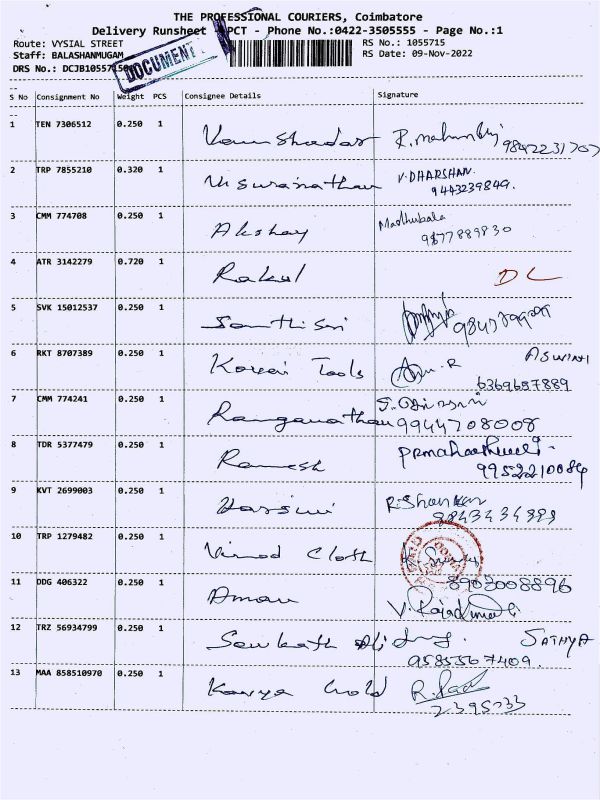 THE PROFESSIONAL COURIERS, Coimbatore
Delivery Runsheet PCT - Phone No.:0422-3505555 - Page No.:1
Route: VYSIAL STREET RS No.: 1055715
Staff: BALASHANMUGAM RS Date: 09-Nov-2022
DRS No.: DCJB1055715
DOCUMENT
S No Consignment No Weight PCS Consignee Details Signature
1 TEN 7306512 0.250 1
9842231707
2 TRP 7855210 0.320 1 Viswanathan V. DHARSHAN.
9443239849.
3 CMM 774708 0.250 1 Akshay Madhubala
9877889830
4 ATR 3142279 0.720 1 Rakul DL
5 SVK 15012537 0.250 1 Santhisri
6 RKT 8707389 0.250 1 Kovai Tools ASWINI
6369657889
7 CMM 774241 0.250 1 Ranganathan
9944708008
8 TDR 5377479 0.250 1 Ramesh
9952210084
9 KVT 2699003 0.250 1 Harsini R. Shanker
10 TRP 1279482 0.250 1 Vinod Cloth
8903008896
11 DDG 406322 0.250 1 Aman
12 TRZ 56934799 0.250 1 Sowkath Ali SATHYA
9585567409.
13 MAA 858510970 0.250 1 Kavya Gold
2395233